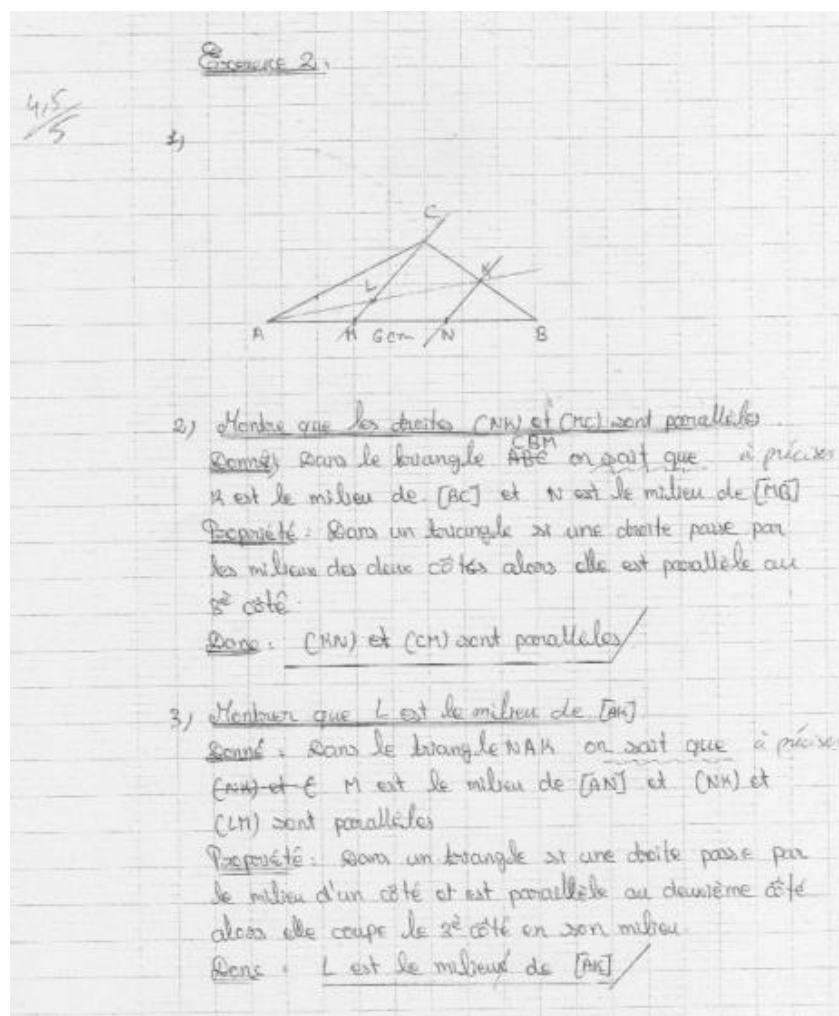 Exercice 2.
4,5/5
1)
C
L
K
A
M
6cm
N
B
2) Montre que les droites (NK) et (MC) sont parallèles.
Donné; Dans le triangle ABC CBM on sait que à préciser
K est le milieu de [BC] et N est le milieu de [MB]
Propriété : Dans un triangle si une droite passe par
les milieux des deux côtés alors elle est parallèle au
3e côté.
Donc : (KN) et (CM) sont parallèles
3) Montrer que L est le milieu de [AK]
Donné : Dans le triangle NAK on sait que à préciser
(NK) et C M est le milieu de [AN] et (NK) et
(LM) sont parallèles
Propriété : Dans un triangle si une droite passe par
le milieu d'un côté et est parallèle au deuxième côté
alors elle coupe le 3e côté en son milieu.
Donc : L est le milieux de [AK]